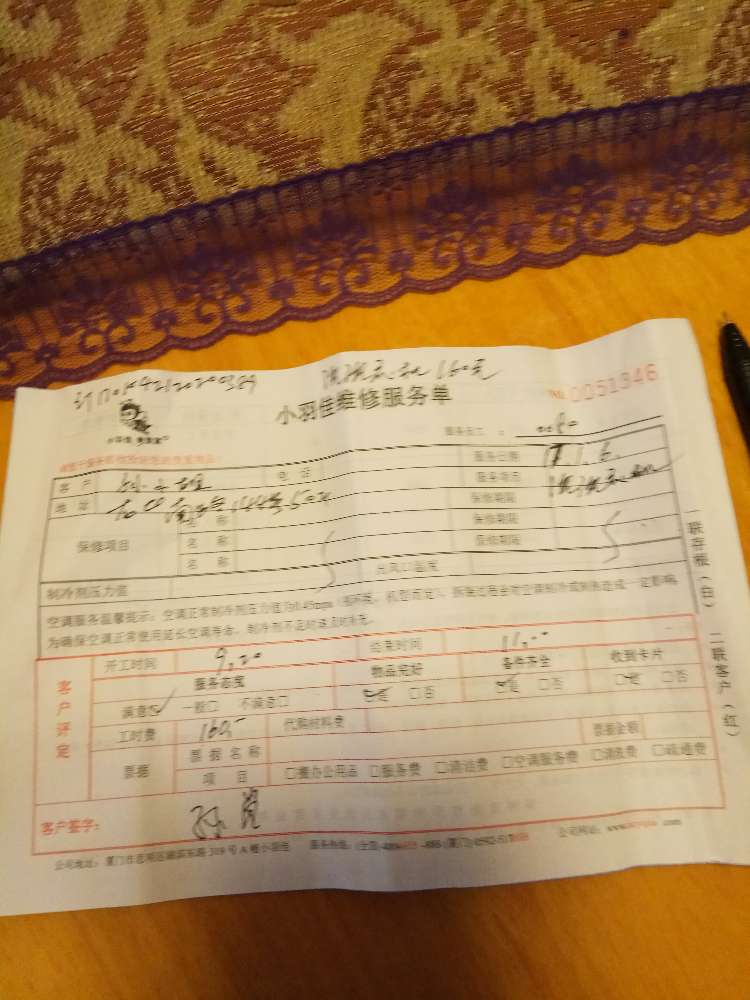 洗洗衣机160元
小羽佳维修服务单
No 0051346
服务员工：
客户 电话 服务日期 17.1.6.
地址 服务项目 洗洗衣机
保修项目 名称 保修期限
名称 保修期限
名称 保修期限
制冷剂压力值 出风口温度
空调服务温馨提示：空调正常制冷剂压力值为0.45mpa
为确保空调正常使用延长空调寿命，制冷剂不足时请及时补充。
客户评定
开工时间 9:20 结束时间 11:00
服务态度 物品完好 备件齐全 收到卡片
满意 一般□ 不满意□ 是 □否 是 □否 是 □否
工时费 160- 代购材料费
票据 票据名称 票据金额
项目 □办公用品 □服务费 □清洁费 □空调服务费 □清洗费 □疏通费
客户签字：
一联存根（白） 二联客户（红）
公司地址：厦门市思明区 319号A幢小羽佳 服务热线： 公司网址：